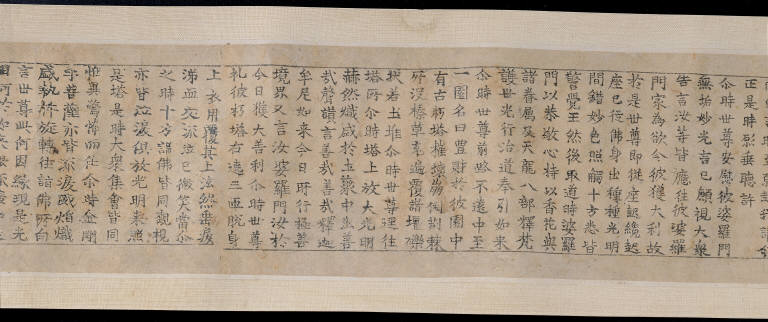 正是時形垂聽許
尒時世尊安慰彼婆羅門
無垢妙光言已顧視大衆
告言汝等皆應往彼婆羅
門家為欲令彼獲大利故
於是世尊即從座起纔起
座已從佛身出種種光明
間錯妙色照觸十方悉皆
警覺王然後取道時婆羅
門以恭敬心持以香花與
諸眷屬及天龍八部釋梵
護世先行治道奉引如來
尒時世尊前路不遠中至
一園名曰豐財於彼園中
有古朽塔摧壞崩倒荊棘
所沒榛草充遍覆諸壃礫
狀若土堆尒時世尊逕往
塔所尒時塔上放大光明
赫然熾盛於土聚中出善
哉聲讚言善哉善哉釋迦
牟尼如來今日所行極善
境界又言汝婆羅門汝於
今日獲大善利尒時世尊
礼彼朽塔右遶三匝脫身
上衣用覆其上泫然垂淚
涕血交流泣已微笑當尒
之時十方諸佛皆同觀視
亦皆泣淚俱放光明來照
是塔是時大衆集會皆同
怪異驚怖而住尒時金剛
手菩薩亦皆流淚威焰熾
盛執杵旋轉往詣佛所白
言世尊此何因緣現是光